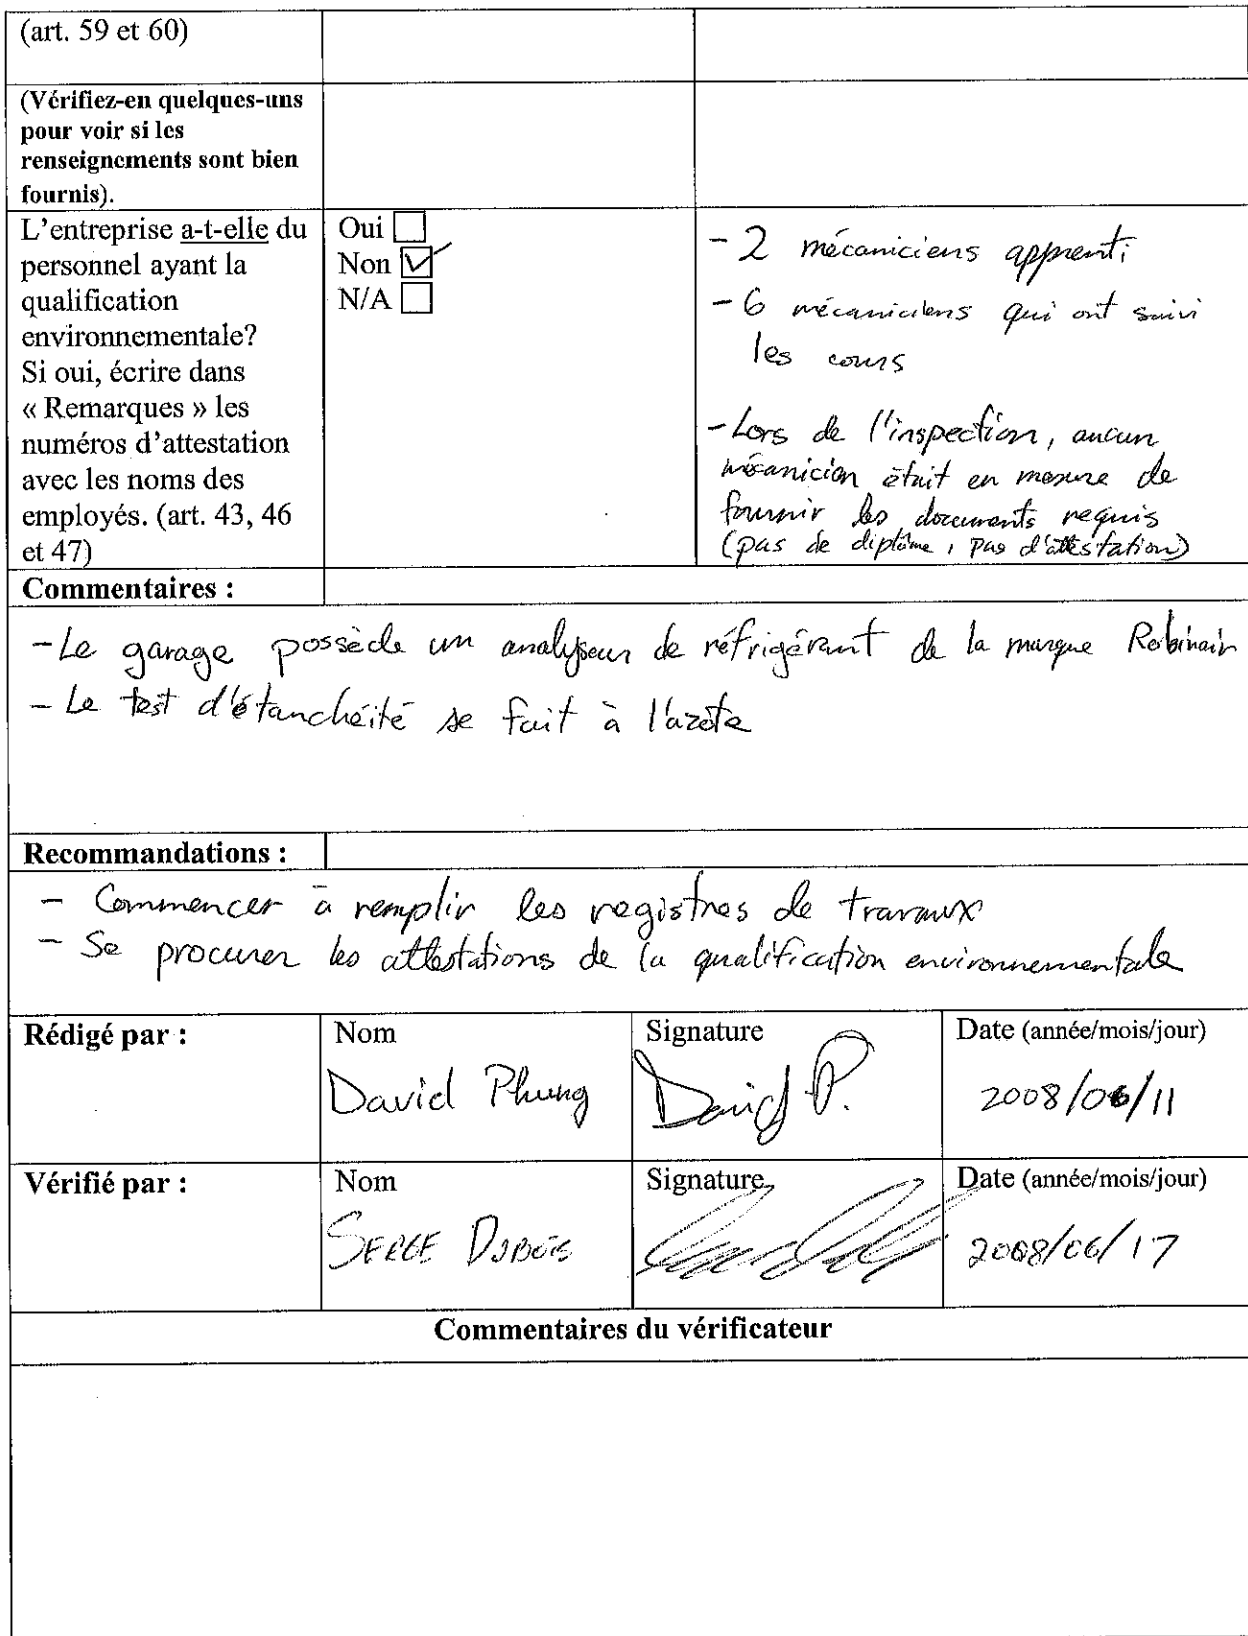 (art. 59 et 60)
(Vérifiez-en quelques-uns
pour voir si les
renseignements sont bien
fournis).
L'entreprise a-t-elle du
personnel ayant la
qualification
environnementale?
Si oui, écrire dans
« Remarques » les
numéros d'attestation
avec les noms des
employés. (art. 43, 46
et 47)
Oui ☐
Non ☑
N/A ☐
- 2 mécaniciens apprenti
- 6 mécaniciens qui ont suivi
les cours
- Lors de l'inspection, aucun
mécanicien était en mesure de
fournir les documents requis
(pas de diplôme, pas d'attestation)
Commentaires :
- Le garage possède un analyseur de réfrigérant de la marque Robinair
- Le test d'étanchéité se fait à l'azote
Recommandations :
- Commencer à remplir les registres de travaux
- Se procurer les attestations de la qualification environnementale
Rédigé par :
Nom
David Phung
Signature
David P.
Date (année/mois/jour)
2008/06/11
Vérifié par :
Nom
SERGE DUBOIS
Signature
Date (année/mois/jour)
2008/06/17
Commentaires du vérificateur